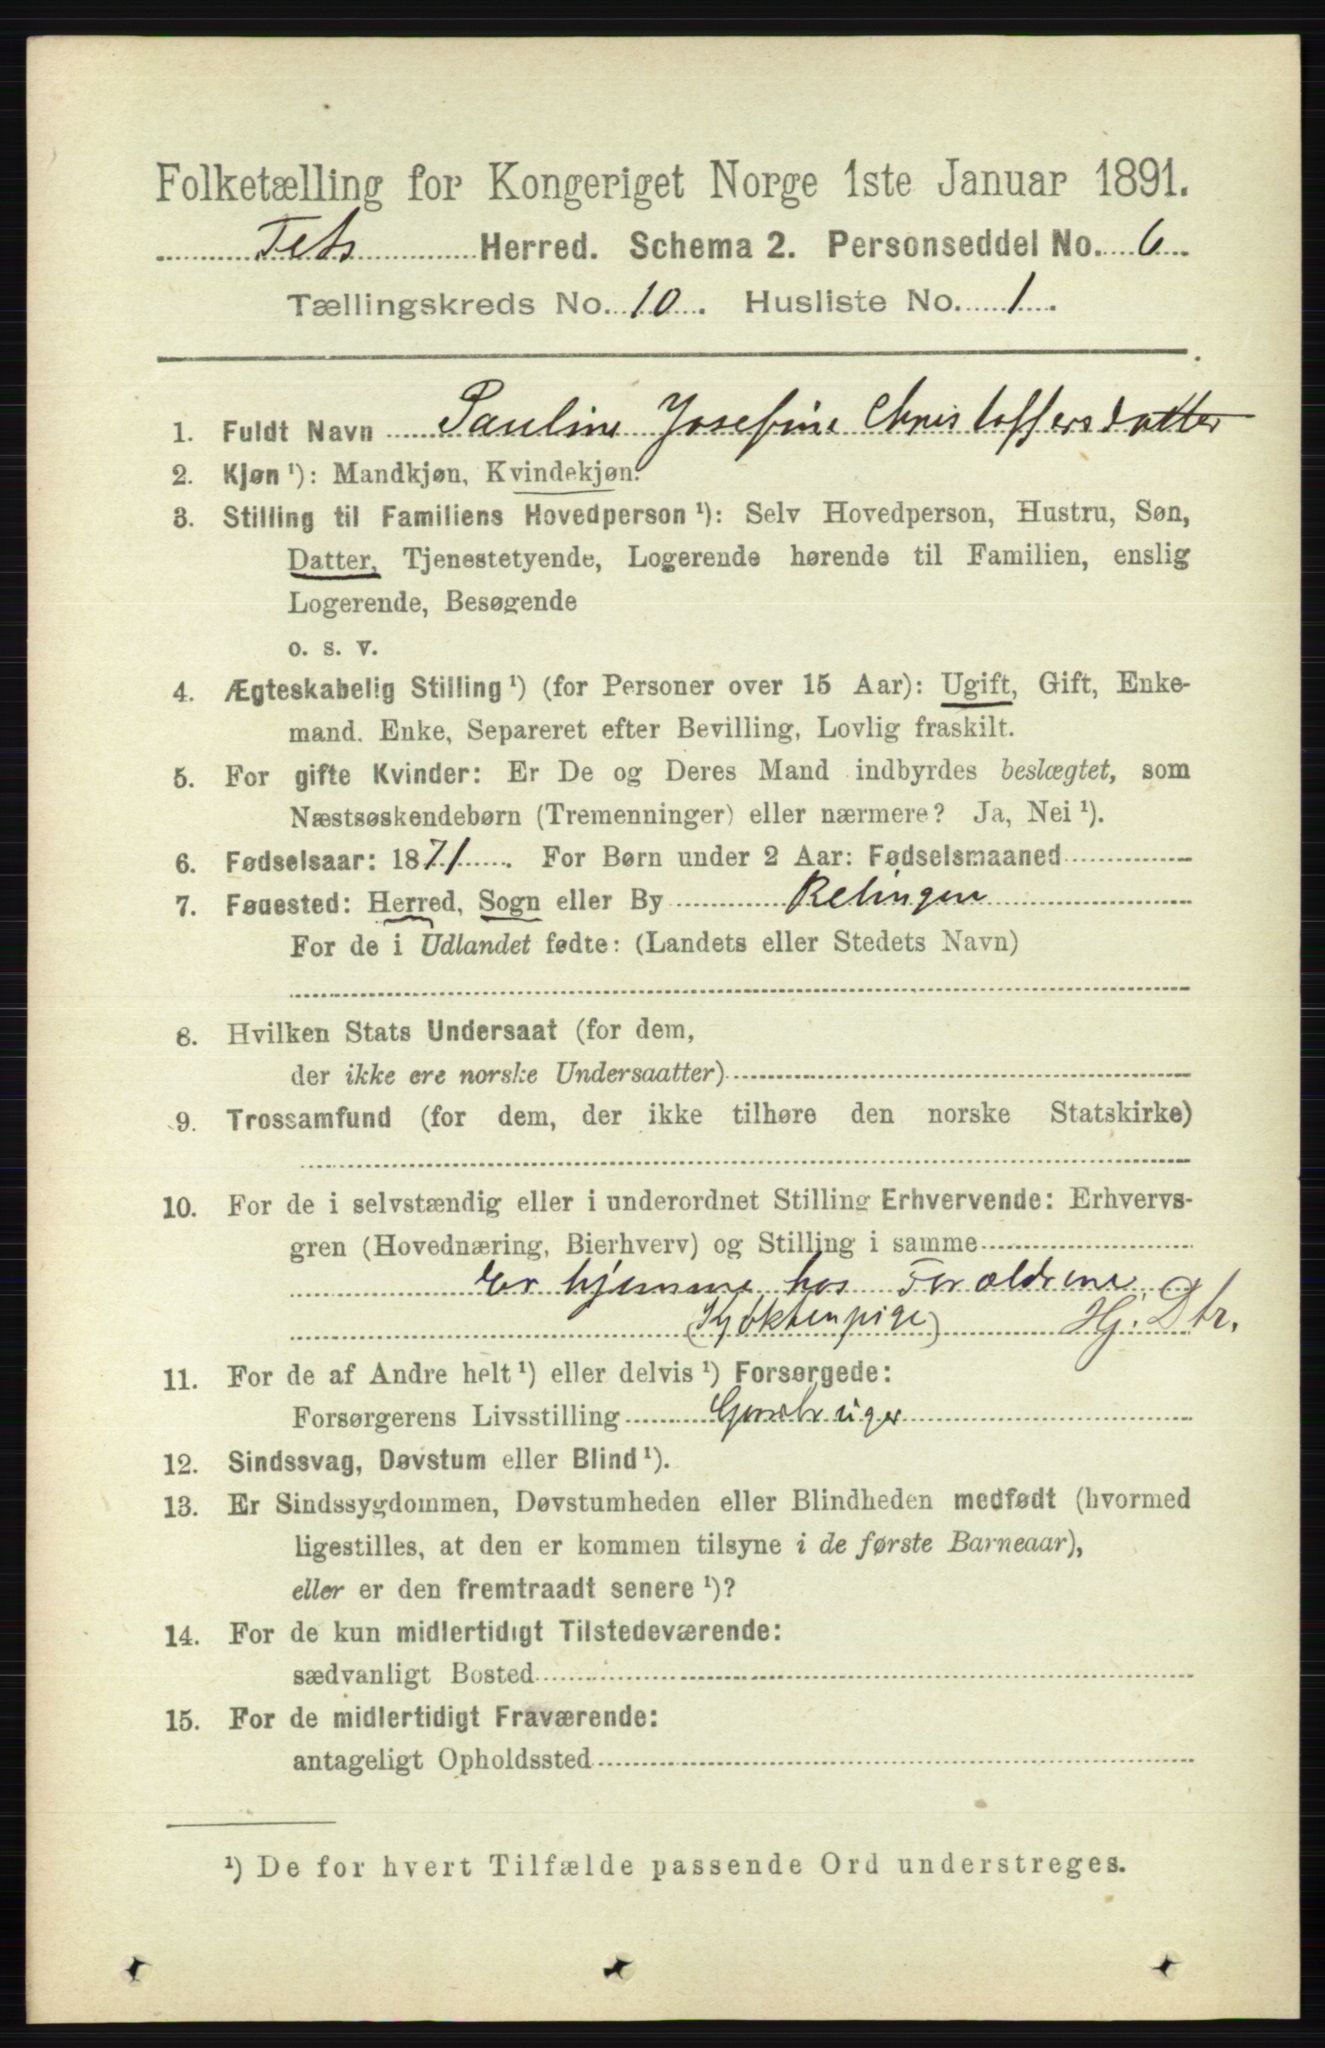 Folketælling for Kongeriget Norge 1ste Januar 1891.
Fets Herred. Schema 2. Personseddel No. 6.
Tællingskreds No. 10. Husliste No. 1.
1. Fuldt Navn Pauline Josefine Christoffersdatter
2. Kjøn ¹): Mandkjøn, Kvindekjøn.
3. Stilling til Familiens Hovedperson ¹): Selv Hovedperson, Hustru, Søn,
Datter, Tjenestetyende, Logerende hørende til Familien, enslig
Logerende, Besøgende
o. s. v.
4. Ægteskabelig Stilling ¹) (for Personer over 15 Aar): Ugift, Gift, Enke-
mand. Enke, Separeret efter Bevilling, Lovlig fraskilt.
5. For gifte Kvinder: Er De og Deres Mand indbyrdes beslægtet, som
Næstsøskendebørn (Tremenninger) eller nærmere? Ja, Nei ¹).
6. Fødselsaar: 1871. For Børn under 2 Aar: Fødselsmaaned
7. Føuested: Herred, Sogn eller By Relingen
For de i Udlandet fødte: (Landets eller Stedets Navn)
8. Hvilken Stats Undersaat (for dem,
der ikke ere norske Undersaatter)
9. Trossamfund (for dem, der ikke tilhøre den norske Statskirke)
10. For de i selvstændig eller i underordnet Stilling Erhvervende: Erhvervs-
gren (Hovednæring, Bierhverv) og Stilling i samme
Er hjemme hos Forældrene
(Kjøkkenpige) Hj. Dtr.
11. For de af Andre helt ¹) eller delvis ¹) Forsørgede:
Forsørgerens Livsstilling Gaardbruger
12. Sindssvag, Døvstum eller Blind ¹).
13. Er Sindssygdommen, Døvstumheden eller Blindheden medfødt (hvormed
ligestilles, at den er kommen tilsyne i de første Barneaar),
eller er den fremtraadt senere ¹)?
14. For de kun midlertidigt Tilstedeværende:
sædvanligt Bosted
15. For de midlertidigt Fraværende:
antageligt Opholdssted
¹) De for hvert Tilfælde passende Ord understreges.